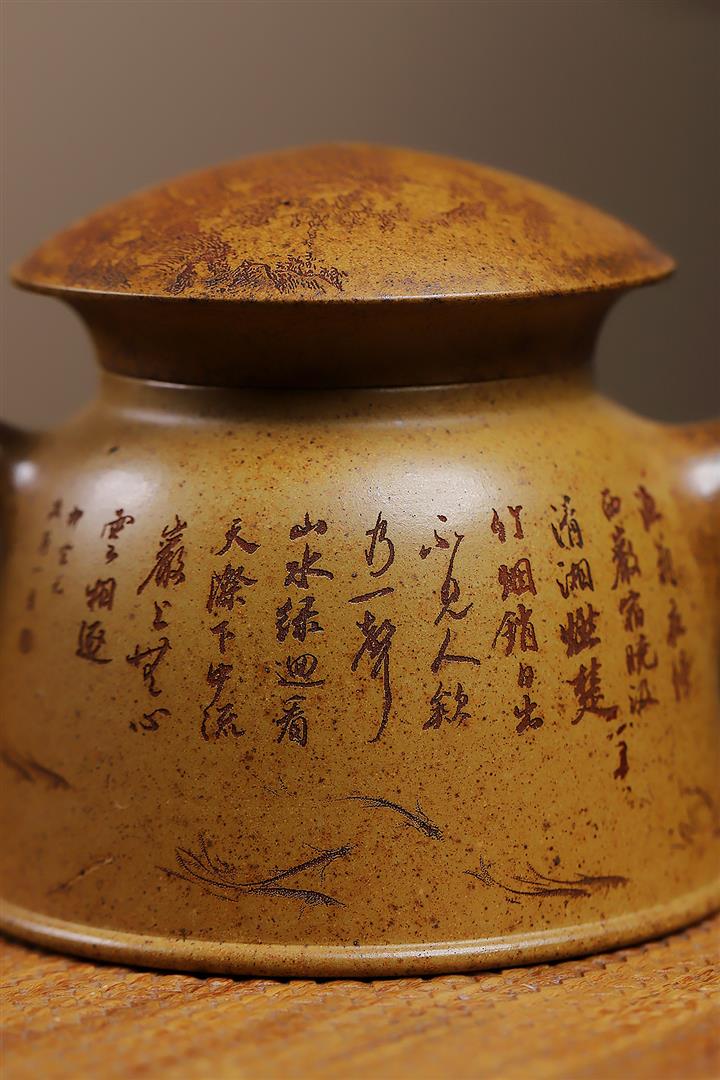 漁翁夜傍
西巖宿曉汲
清湘燃楚
竹烟銷日出
不見人欸
乃一聲
山水緑迴看
天際下中流
巖上無心
雲相逐